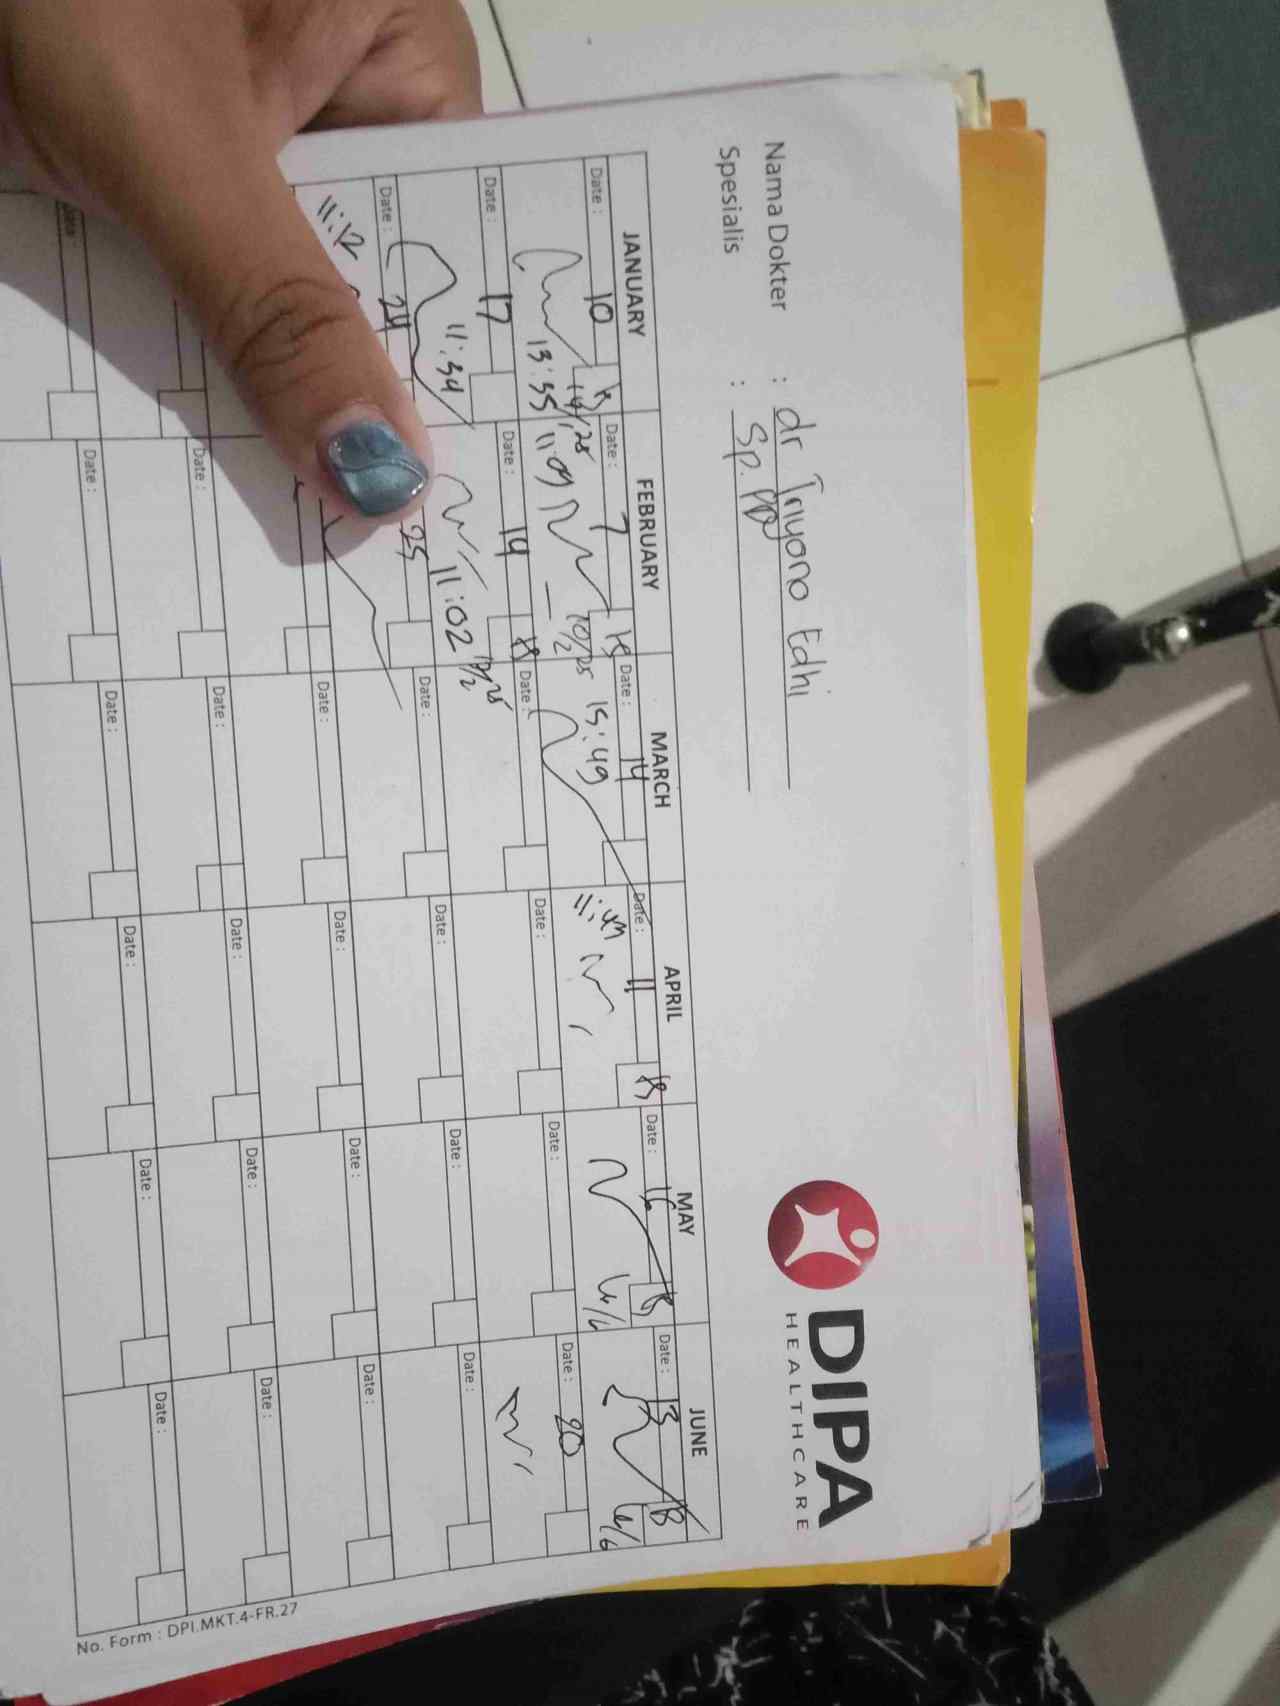 DIPA
HEALTHCARE
Nama Dokter : dr Triyono Edhi
Spesialis : Sp. PD
JANUARY FEBRUARY MARCH APRIL MAY JUNE
Date : 10 Date : 7 Date : 14 Date : 11 Date : 16 Date : 13
13:35 11:09 15:49
Date : 17 Date : 14 Date : Date : Date : Date : 20
11:34 11:02
Date : 24 25 Date : Date : Date : Date :
11:12
Date : Date : Date : Date :
Date : Date : Date : Date : Date :
Date : Date : Date : Date : Date : Date :
No. Form : DPI.MKT.4-FR.27